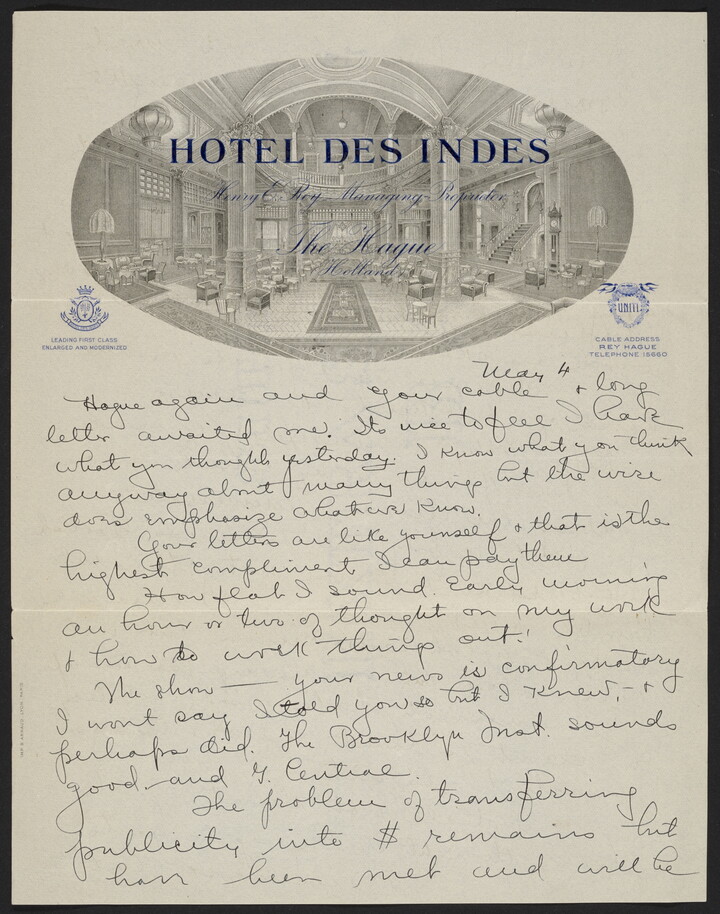 HOTEL DES INDES
Henry E. Rey Managing-Proprietor
The Hague
Holland
LEADING FIRST CLASS
ENLARGED AND MODERNIZED
UNITI
CABLE ADDRESS
REY HAGUE
TELEPHONE 15600
May 4
Hague again and your cable + long
letter awaited me. Its nice to feel I have
what you thought yesterday. I know what you think
anyway about many things but the wire
does emphasize what we know.
Your letters are like yourself + that is the
highest compliment I can pay them
How flat I sound. Early morning
an hour or two of thought on my work
+ how to work things out!
The show — your news is confirmatory
I wont say I told you so but I knew, - +
perhaps did. The Brooklyn Inst. sounds
good - and G. Central.
The problem of transferring
publicity into $ remains but
has been met and will be